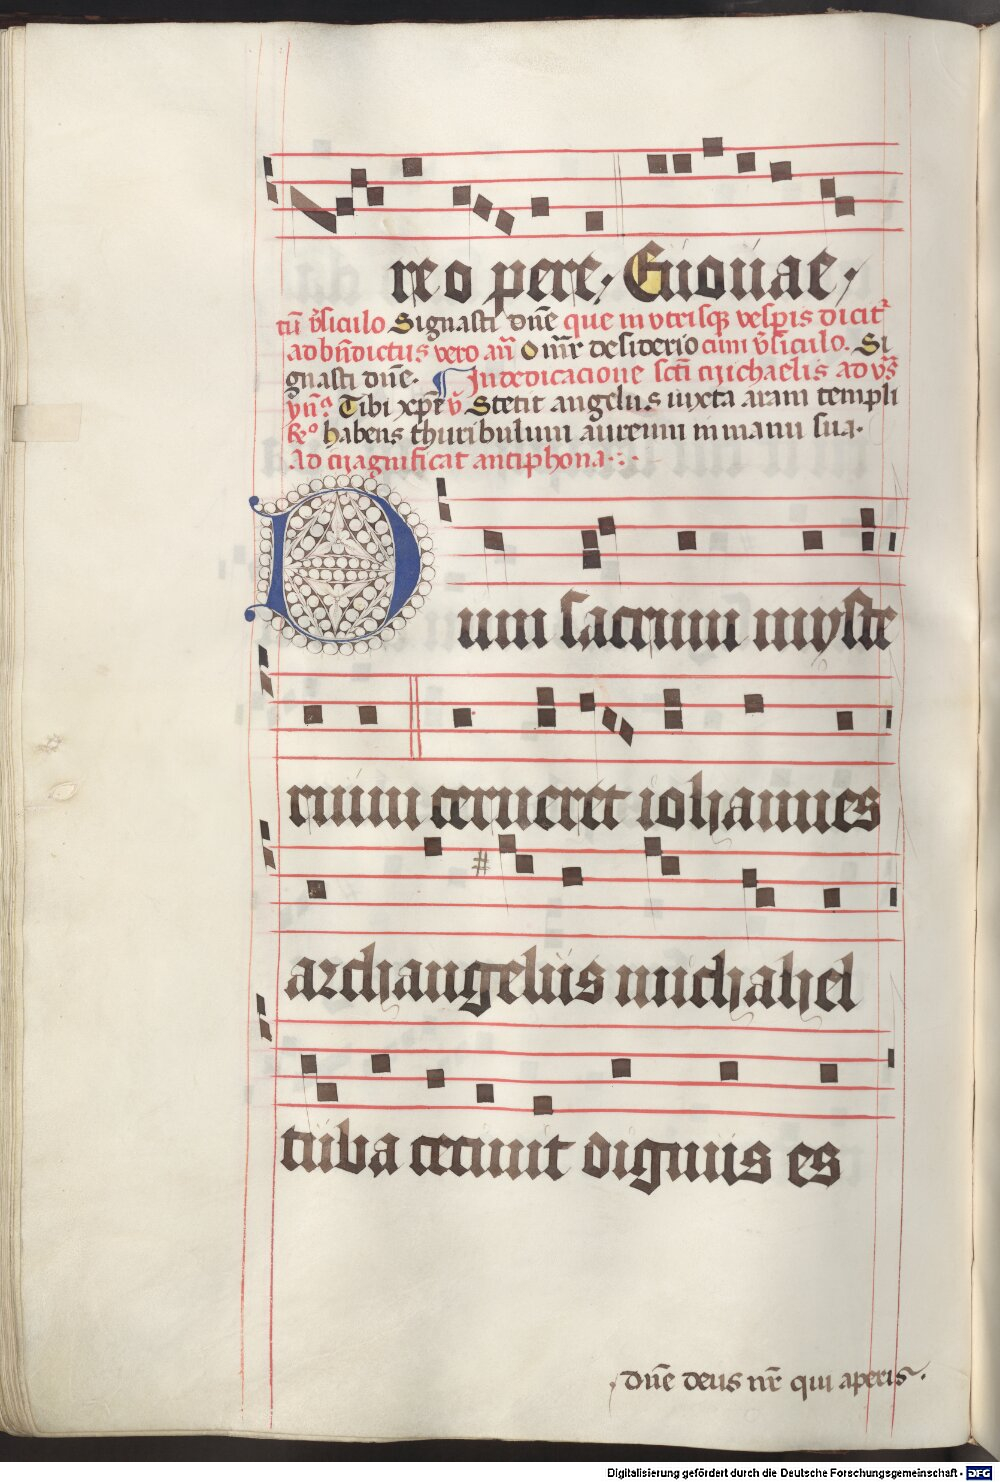 re opere. Euouae.
tū v̄siculo Signasti dn̄e que in vtrisq; vesp̄is dicit᷑
ad bn̄dictus vero an̄ O mr̄ desiderio cum v̄siculo. Si
gnasti dn̄e. In dedicacione sctī michaelis ad vs̄
yn̄ᵃ. Tibi xp̄e v̄ Stetit angelus iuxta aram templi
Rº habens thuribulum aureum in manu sua.
Ad magnificat antiphona.
Dum sacrum myste
rium cerneret iohannes
archangelus michahel
tuba cecinit dignus es
dn̄e deus nr̄ qui aperis.
Digitalisierung gefördert durch die Deutsche Forschungsgemeinschaft - DFG